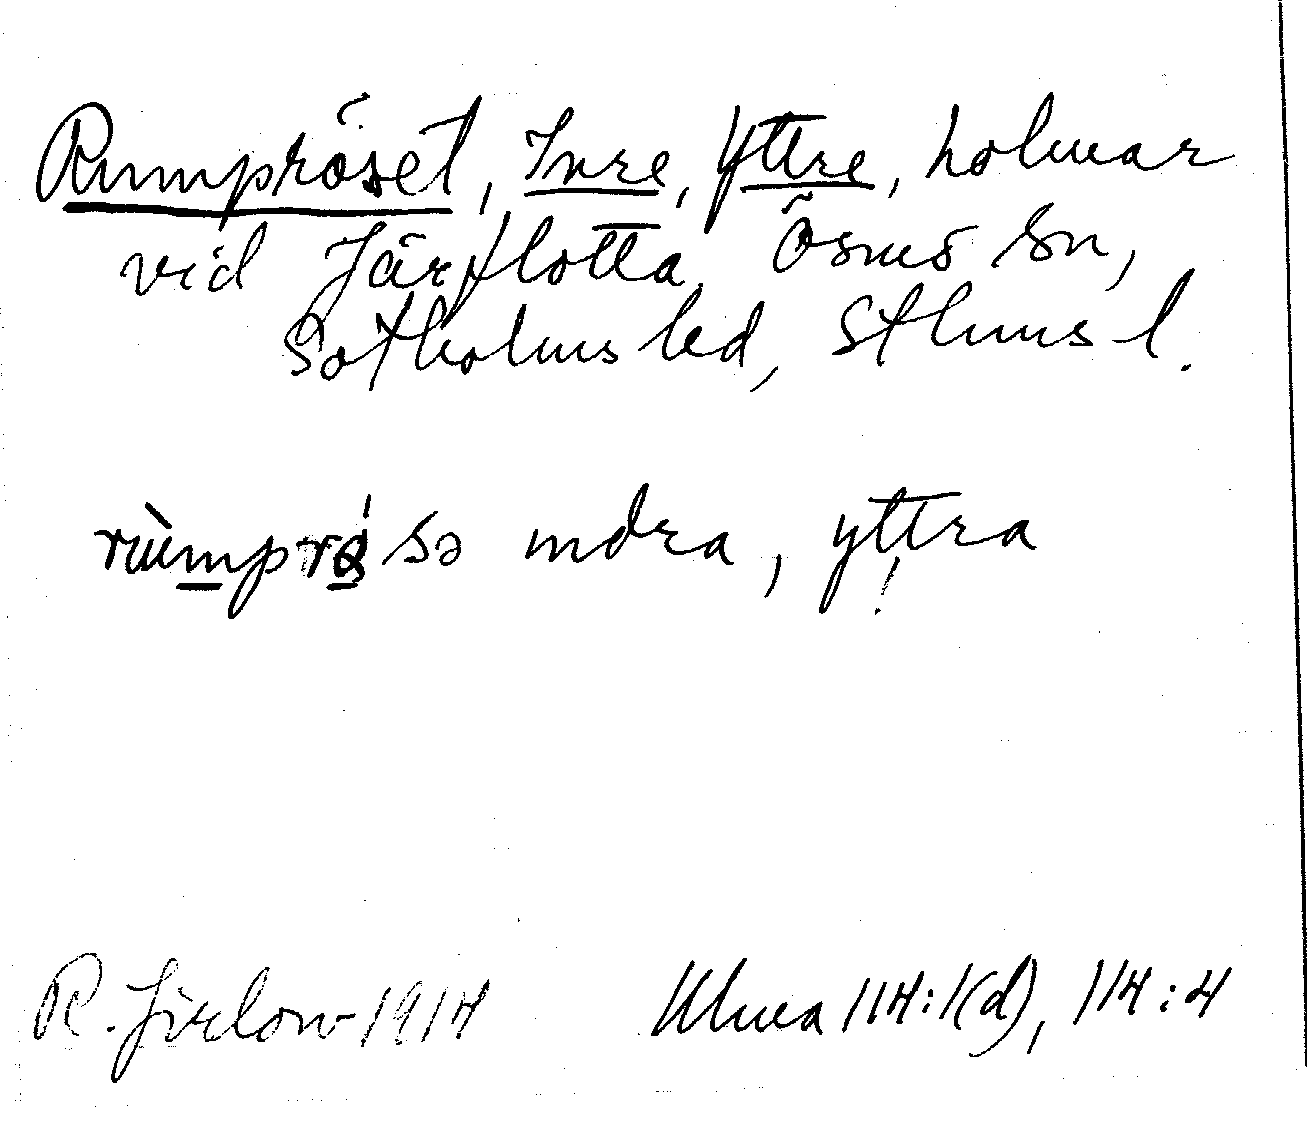 Rumpröset, Inre, Yttre, holmar
vid Järflotta, Ösmo sn,
Sotholms hd, Sthms l.
rùmprǿsə indra, yttra
R. Jirlow 1914 114:1(d), 114:4